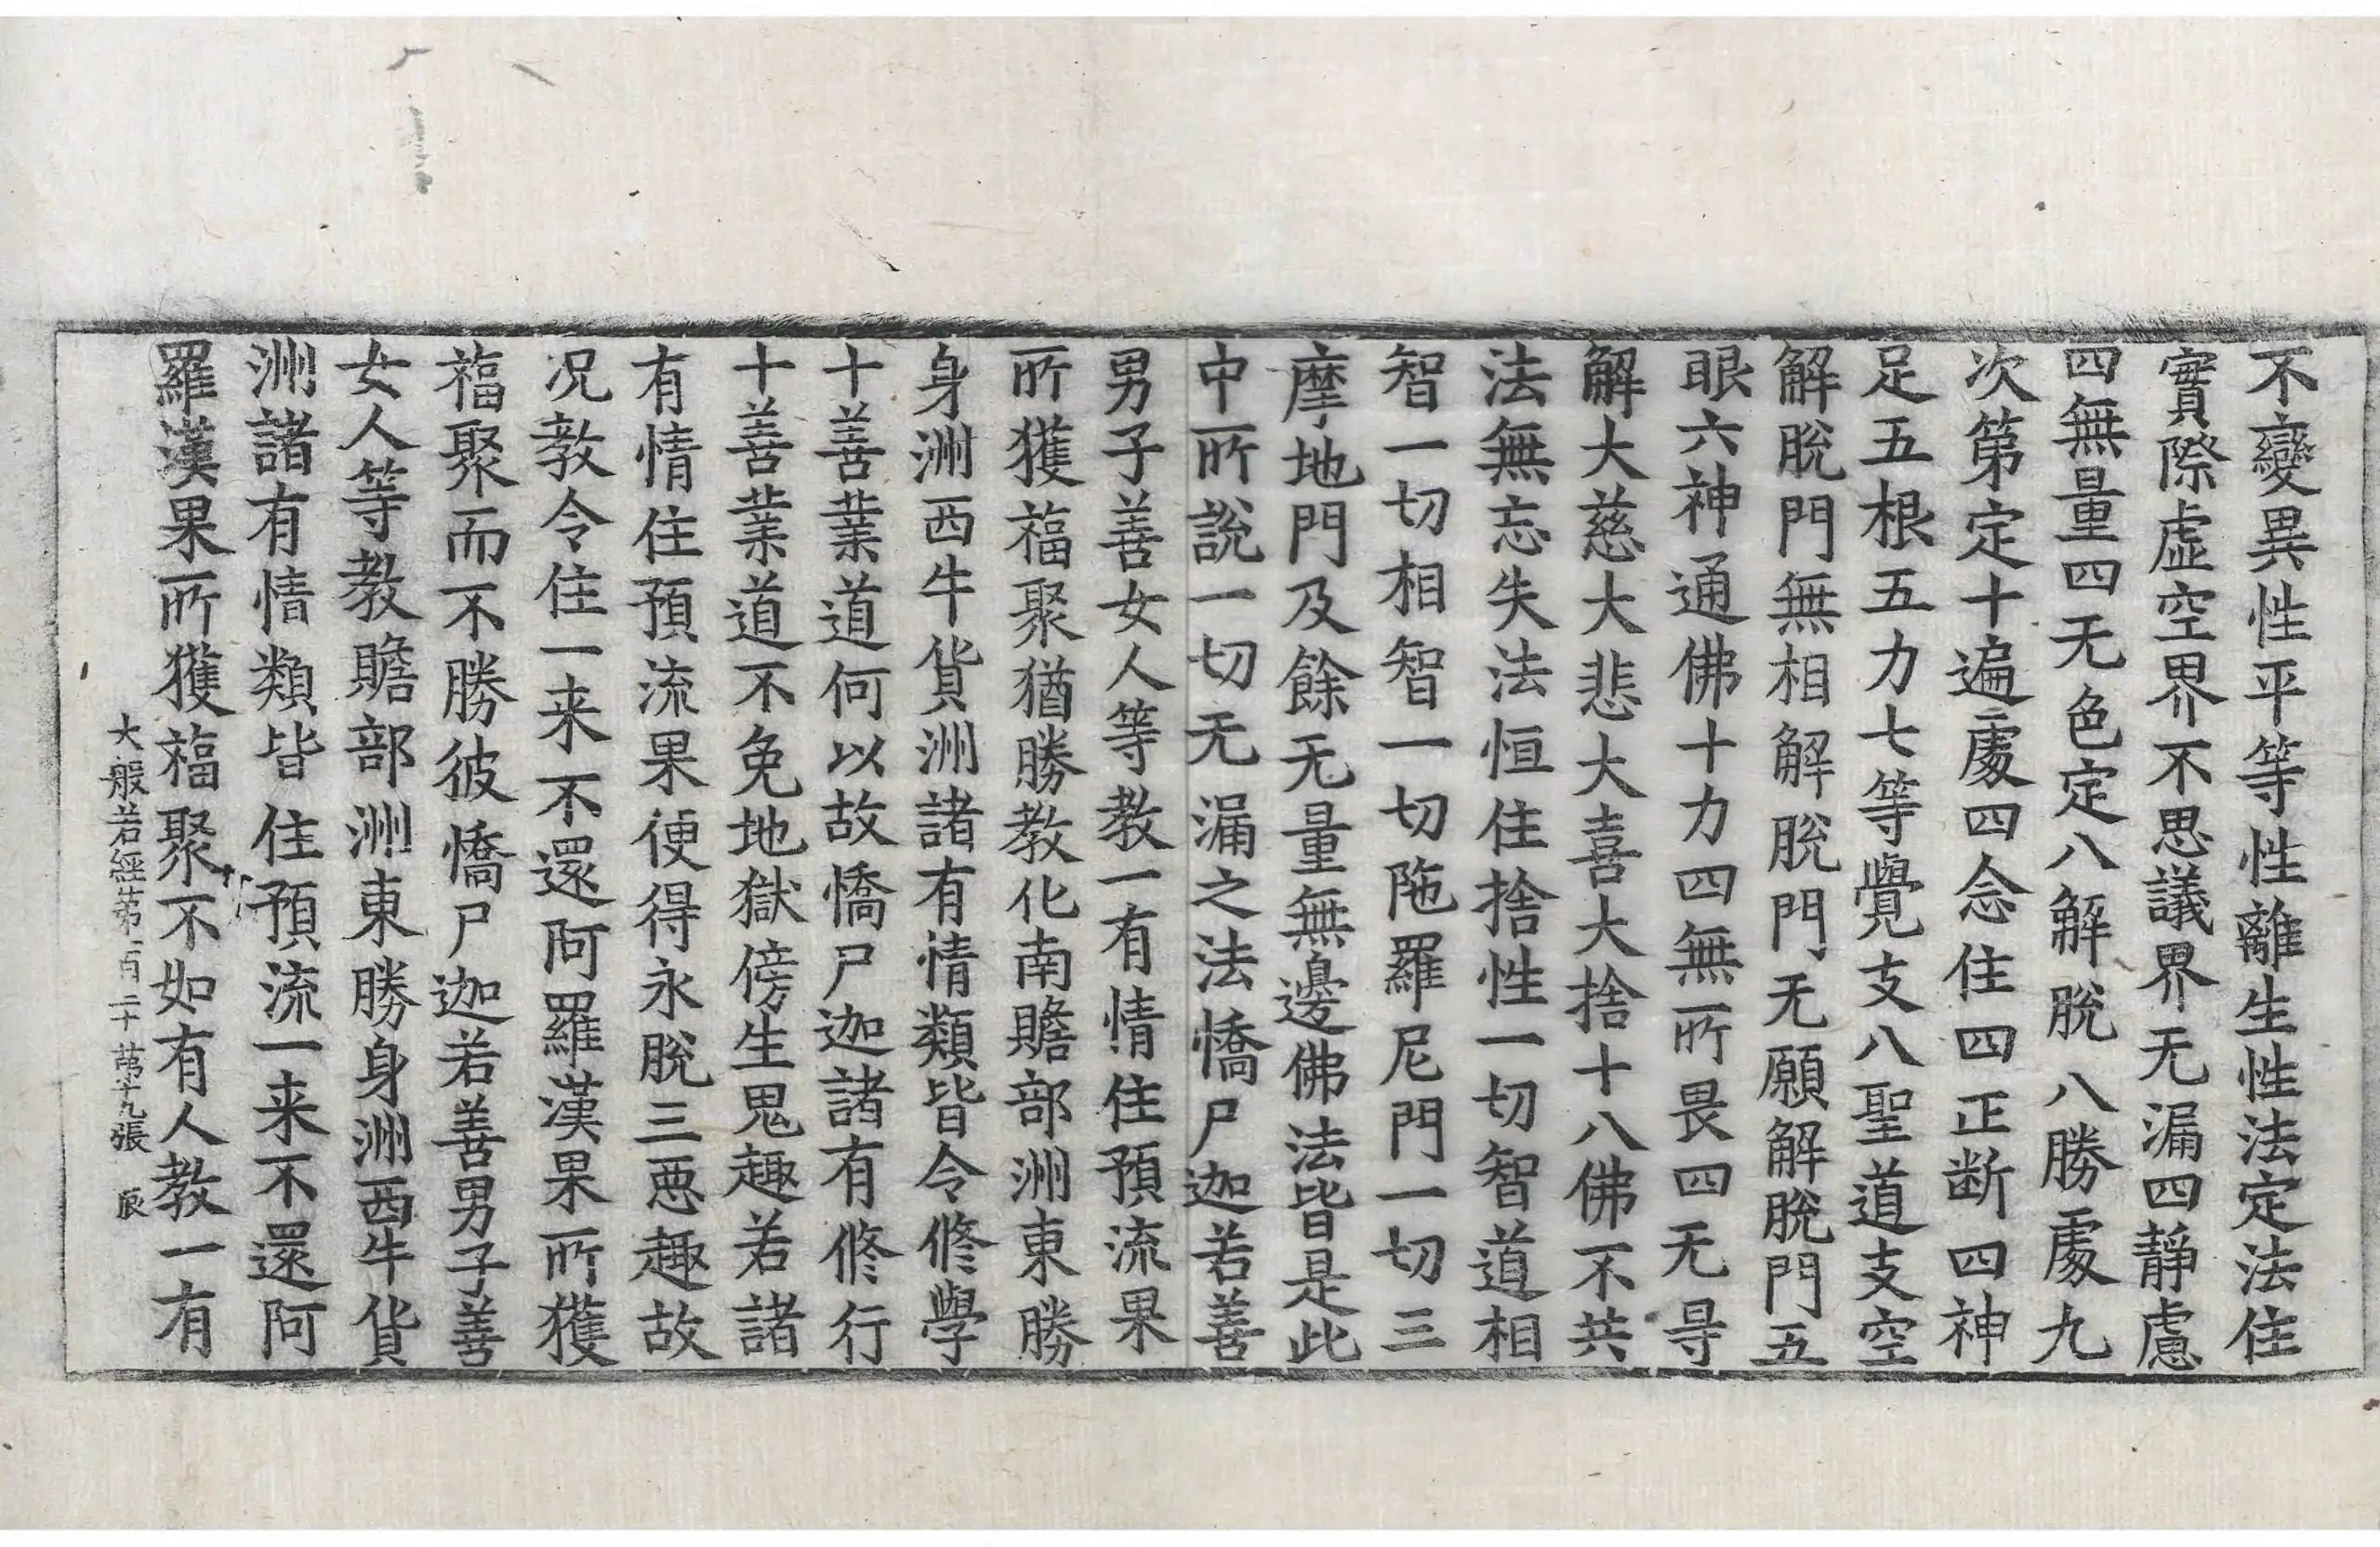 不變異性平等性離生性法定法住
實際虛空界不思議界无漏四靜慮
四無量四无色定八解脫八勝處九
次第定十遍處四念住四正断四神
足五根五力七等覺支八聖道支空
解脫門無相解脫門无願解脫門五
眼六神通佛十力四無所畏四无㝵
解大慈大悲大喜大捨十八佛不共
法無忘失法恒住捨性一切智道相
智一切相智一切陁羅尼門一切三
摩地門及餘无量無邊佛法皆是此
中所說一切无漏之法憍尸迦若善
男子善女人等教一有情住預流果
所獲福聚猶勝教化南贍部洲東勝
身洲西牛貨洲諸有情類皆令修學
十善業道何以故憍尸迦諸有修行
十善業道不免地獄傍生鬼趣若諸
有情住預流果便得永脫三惡趣故
况教令住一来不還阿羅漢果所獲
福聚而不勝彼憍尸迦若善男子善
女人等教贍部洲東勝身洲西牛貨
洲諸有情類皆住預流一来不還阿
羅漢果所獲福聚不如有人教一有
大般若經第一百二十 第十九張 辰